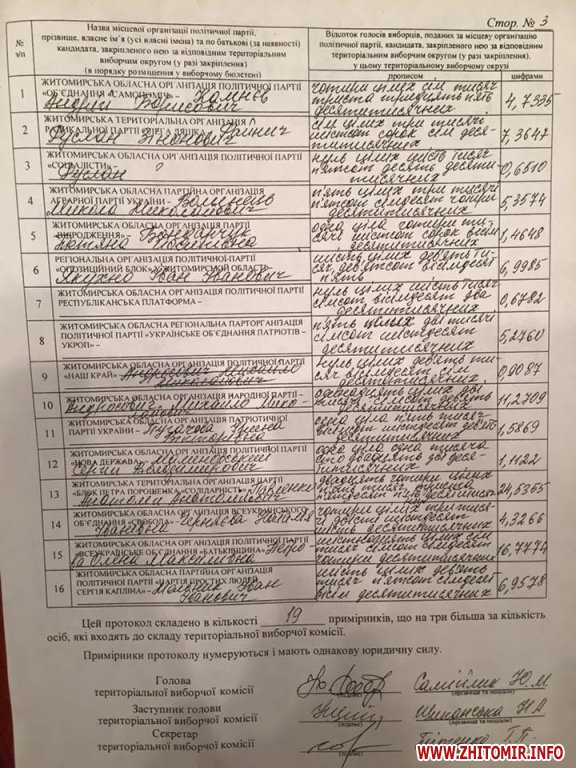 Стор. № 3
№ з/п
Назва місцевої організації політичної партії,
прізвище, власне ім'я (усі власні імена) та по батькові (за наявності)
кандидата, закріпленого нею за відповідним територіальним
виборчим округом (у разі закріплення)
(в порядку розміщення у виборчому бюлетені)
Відсоток голосів виборців, поданих за місцеву організацію
політичної партії, кандидата, закріпленого нею за відповідним
територіальним виборчим округом (у разі закріплення),
у цьому територіальному виборчому окрузі
прописом
цифрами
1
ЖИТОМИРСЬКА ОБЛАСНА ОРГАНІЗАЦІЯ ПОЛІТИЧНОЇ ПАРТІЇ
«ОБ'ЄДНАННЯ «САМОПОМІЧ»
чотири цілих сім тисяч
триста тридцять п'ять
десятитисячних
4,7335
2
ЖИТОМИРСЬКА ТЕРИТОРІАЛЬНА ОРГАНІЗАЦІЯ
РАДИКАЛЬНОЇ ПАРТІЇ ОЛЕГА ЛЯШКА
Руслан
сім цілих три тисячі
шістсот сорок сім деся-
титисячних
7,3647
3
ЖИТОМИРСЬКА ОБЛАСНА ОРГАНІЗАЦІЯ ПОЛІТИЧНОЇ ПАРТІЇ
«СОЦІАЛІСТИ» –
Руслан
нуль цілих шість тисяч
п'ятсот десять десяти-
тисячних
0,6510
4
ЖИТОМИРСЬКА ОБЛАСНА ПАРТІЙНА ОРГАНІЗАЦІЯ
АГРАРНОЇ ПАРТІЇ УКРАЇНИ – Волинець
Микола Миколайович
п'ять цілих три тисячі
п'ятсот сімдесят чотири
десятитисячних
5,3574
5
ЖИТОМИРСЬКА ОБЛАСНА ОРГАНІЗАЦІЯ ПОЛІТИЧНОЇ ПАРТІЇ
«ВІДРОДЖЕННЯ» –
Тетяна
одна ціла чотири ти-
сячі шістсот сорок вісім
десятитисячних
1,4648
6
РЕГІОНАЛЬНА ОРГАНІЗАЦІЯ ПОЛІТИЧНОЇ ПАРТІЇ
«ОПОЗИЦІЙНИЙ БЛОК» У ЖИТОМИРСЬКІЙ ОБЛАСТІ –
Іван Іванович
шість цілих дев'ять ти-
сяч дев'ятсот вісімдесят
п'ять
6,9985
7
ЖИТОМИРСЬКА ОБЛАСНА ОРГАНІЗАЦІЯ ПОЛІТИЧНОЇ ПАРТІЇ
РЕСПУБЛІКАНСЬКА ПЛАТФОРМА –
нуль цілих шість тисяч
сімсот вісімдесят два
десятитисячних
0,6782
8
ЖИТОМИРСЬКА ОБЛАСНА РЕГІОНАЛЬНА ПАРТОРГАНІЗАЦІЯ
ПОЛІТИЧНОЇ ПАРТІЇ «УКРАЇНСЬКЕ ОБ'ЄДНАННЯ ПАТРІОТІВ –
УКРОП» –
п'ять цілих дві тисячі
сімсот шістдесят
десятитисячних
5,2760
9
ЖИТОМИРСЬКА ОБЛАСНА ОРГАНІЗАЦІЯ ПОЛІТИЧНОЇ ПАРТІЇ
«НАШ КРАЙ» –
нуль цілих дев'ять ти-
сяч вісімдесят сім
десятитисячних
0,9087
10
ЖИТОМИРСЬКА ОБЛАСНА ОРГАНІЗАЦІЯ НАРОДНОЇ ПАРТІЇ –
Михайло Мико-
лайович
одинадцять цілих дві
десятитисячних
11,2709
11
ЖИТОМИРСЬКА ОБЛАСНА ОРГАНІЗАЦІЯ ПАТРІОТИЧНОЇ
ПАРТІЇ УКРАЇНИ –
Вікторівна
одна ціла п'ять тисяч
вісімсот шістдесят дев'ять
десятитисячних
1,5869
12
ЖИТОМИРСЬКА ОБЛАСНА ОРГАНІЗАЦІЯ ПОЛІТИЧНОЇ ПАРТІЇ
«НОВА ДЕРЖАВА» –
Сергій Володимирович
одна ціла одна тисяча
сто двадцять дві деся-
титисячних
1,1122
13
ЖИТОМИРСЬКА ТЕРИТОРІАЛЬНА ОРГАНІЗАЦІЯ ПАРТІЇ
«БЛОК ПЕТРА ПОРОШЕНКА «СОЛІДАРНІСТЬ» –
двадцять чотири цілих
десятитисячних
24,5355
14
ЖИТОМИРСЬКА ОБЛАСНА ОРГАНІЗАЦІЯ ВСЕУКРАЇНСЬКОГО
ОБ'ЄДНАННЯ «СВОБОДА» – Черняєва Наталя
Іванівна
чотири цілих три тися-
чі двісті шістдесят
шість десятитисячних
4,3266
15
ЖИТОМИРСЬКА ОБЛАСНА ОРГАНІЗАЦІЯ ПОЛІТИЧНОЇ ПАРТІЇ
«ВСЕУКРАЇНСЬКЕ ОБ'ЄДНАННЯ «БАТЬКІВЩИНА» – Петро-
ва Олена Максимівна
шістнадцять цілих сім
тисяч сімсот сімдесят
чотири десятитисячних
16,7774
16
ЖИТОМИРСЬКА ОБЛАСНА ПАРТІЙНА ОРГАНІЗАЦІЯ
ПОЛІТИЧНОЇ ПАРТІЇ «ПАРТІЯ ПРОСТИХ ЛЮДЕЙ
СЕРГІЯ КАПЛІНА» – Мельник Іван
Іванович
шість цілих дев'ять
тисяч п'ятсот сімдесят
вісім десятитисячних
6,9578
Цей протокол складено в кількості 19 примірників, що на три більша за кількість
осіб, які входять до складу територіальної виборчої комісії.
Примірники протоколу нумеруються і мають однакову юридичну силу.
Голова
територіальної виборчої комісії
(підпис)
Самійлик Ю.М.
(прізвище та ініціали)
Заступник голови
територіальної виборчої комісії
(підпис)
Н.А.
(прізвище та ініціали)
Секретар
територіальної виборчої комісії
(підпис)
(прізвище та ініціали)
WWW.ZHITOMIR.INFO